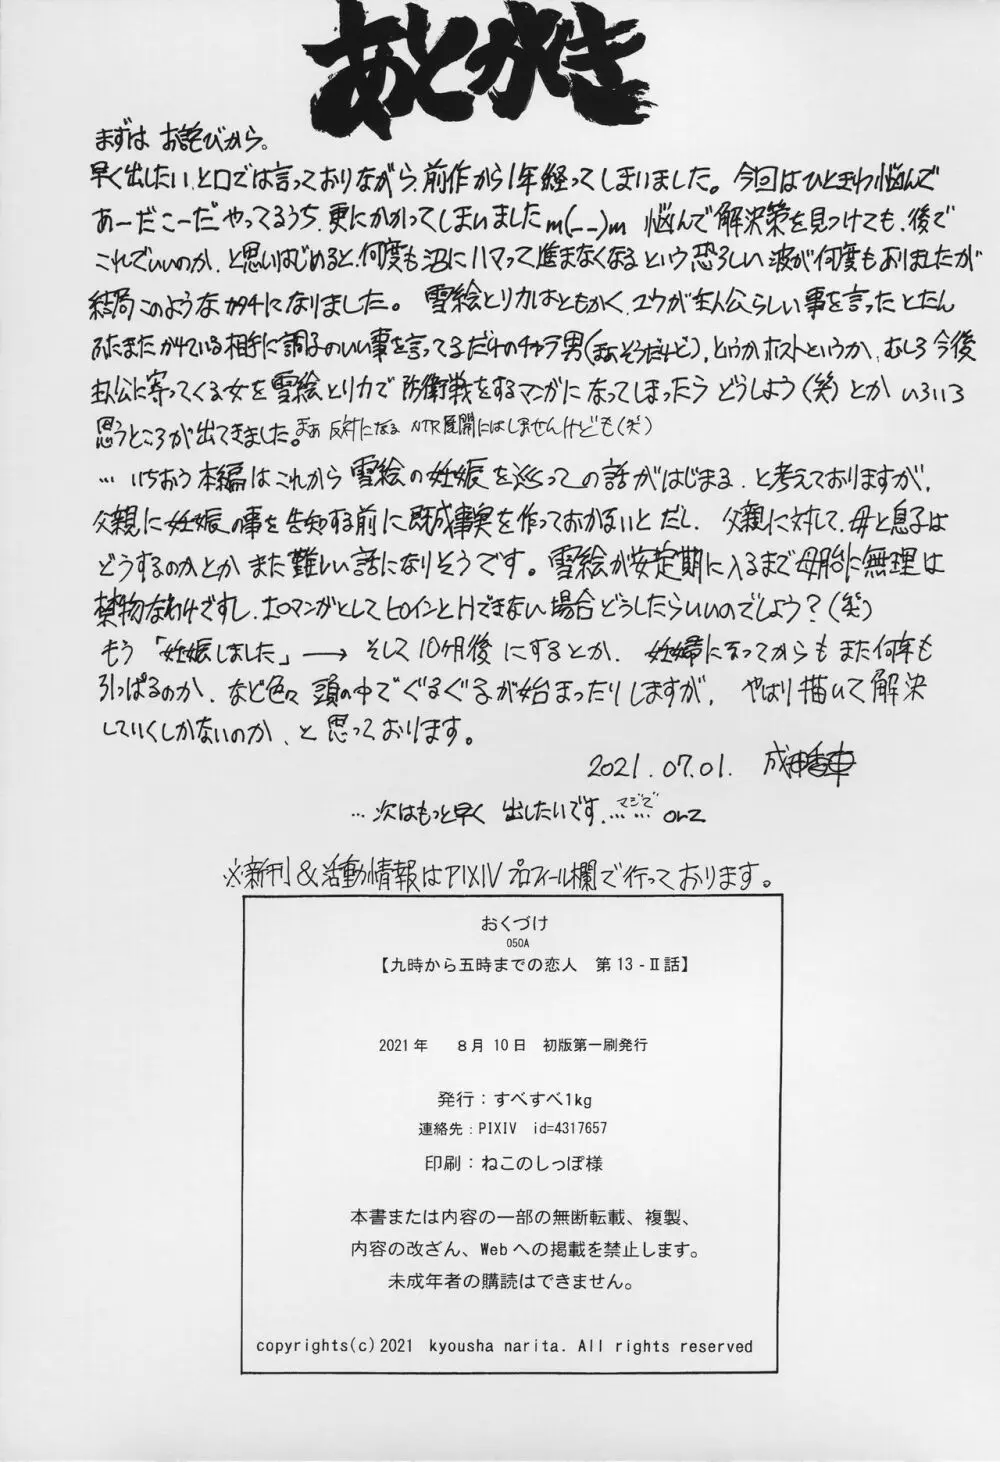 あとがき
まずは お詫びから。
早く出したい、と口では言っておりながら、前作から1年経ってしまいました。今回はひときわ悩んで
あーだこーだやってるうち、更にかかってしまいましたm(__)m 悩んで解決策を見つけても、後で
これでいいのか、と思いはじめると、何度も沼にハマって進まなくなるという恐ろしい波が何度もありましたが
結局このようなカタチになりました。雪絵とリカはともかく、ユウが主人公らしい事を言ったとたん
ふたまたかけている相手に調子のいい事を言ってるだけのチャラ男(まぁそうだけど)、というかホストというか、むしろ今後
主人公に寄ってくる女を雪絵とリカで防衛戦をするマンガになってしまったらどうしよう(笑)とか いろいろ
思うところが出てきました。まぁ 反対になる NTR展開にはしませんけども(笑)
…いちおう本編はこれから雪絵の妊娠を巡っての話がはじまる、と考えておりますが、
父親に妊娠の事を告知する前に既成事実を作っておかないとだし、父親に対して、母と息子は
どうするのかとか また難しい話になりそうです。雪絵が安定期に入るまで母胎に無理は
禁物なわけですし、エロマンガとしてヒロインとHできない場合どうしたらいいのでしょう?(笑)
もう「妊娠しました」→ そして10ヶ月後 にするとか、妊婦になってからもまた何年も
引っぱるのか、など色々頭の中でぐるぐるが始まったりしますが、やはり描いて解決
していくしかないのか、と思っております。
2021.07.01. 成田香車
…次はもっと早く 出したいです、マジで…… orz
※新刊&活動情報はPIXIVプロフィール欄で行っております。
おくづけ
050A
【九時から五時までの恋人 第13-Ⅱ話】
2021年 8月10日 初版第一刷発行
発行：すべすべ1kg
連絡先：PIXIV id=4317657
印刷：ねこのしっぽ様
本書または内容の一部の無断転載、複製、
内容の改ざん、Webへの掲載を禁止します。
未成年者の購読はできません。
copyrights(c)2021 kyousha narita. All rights reserved